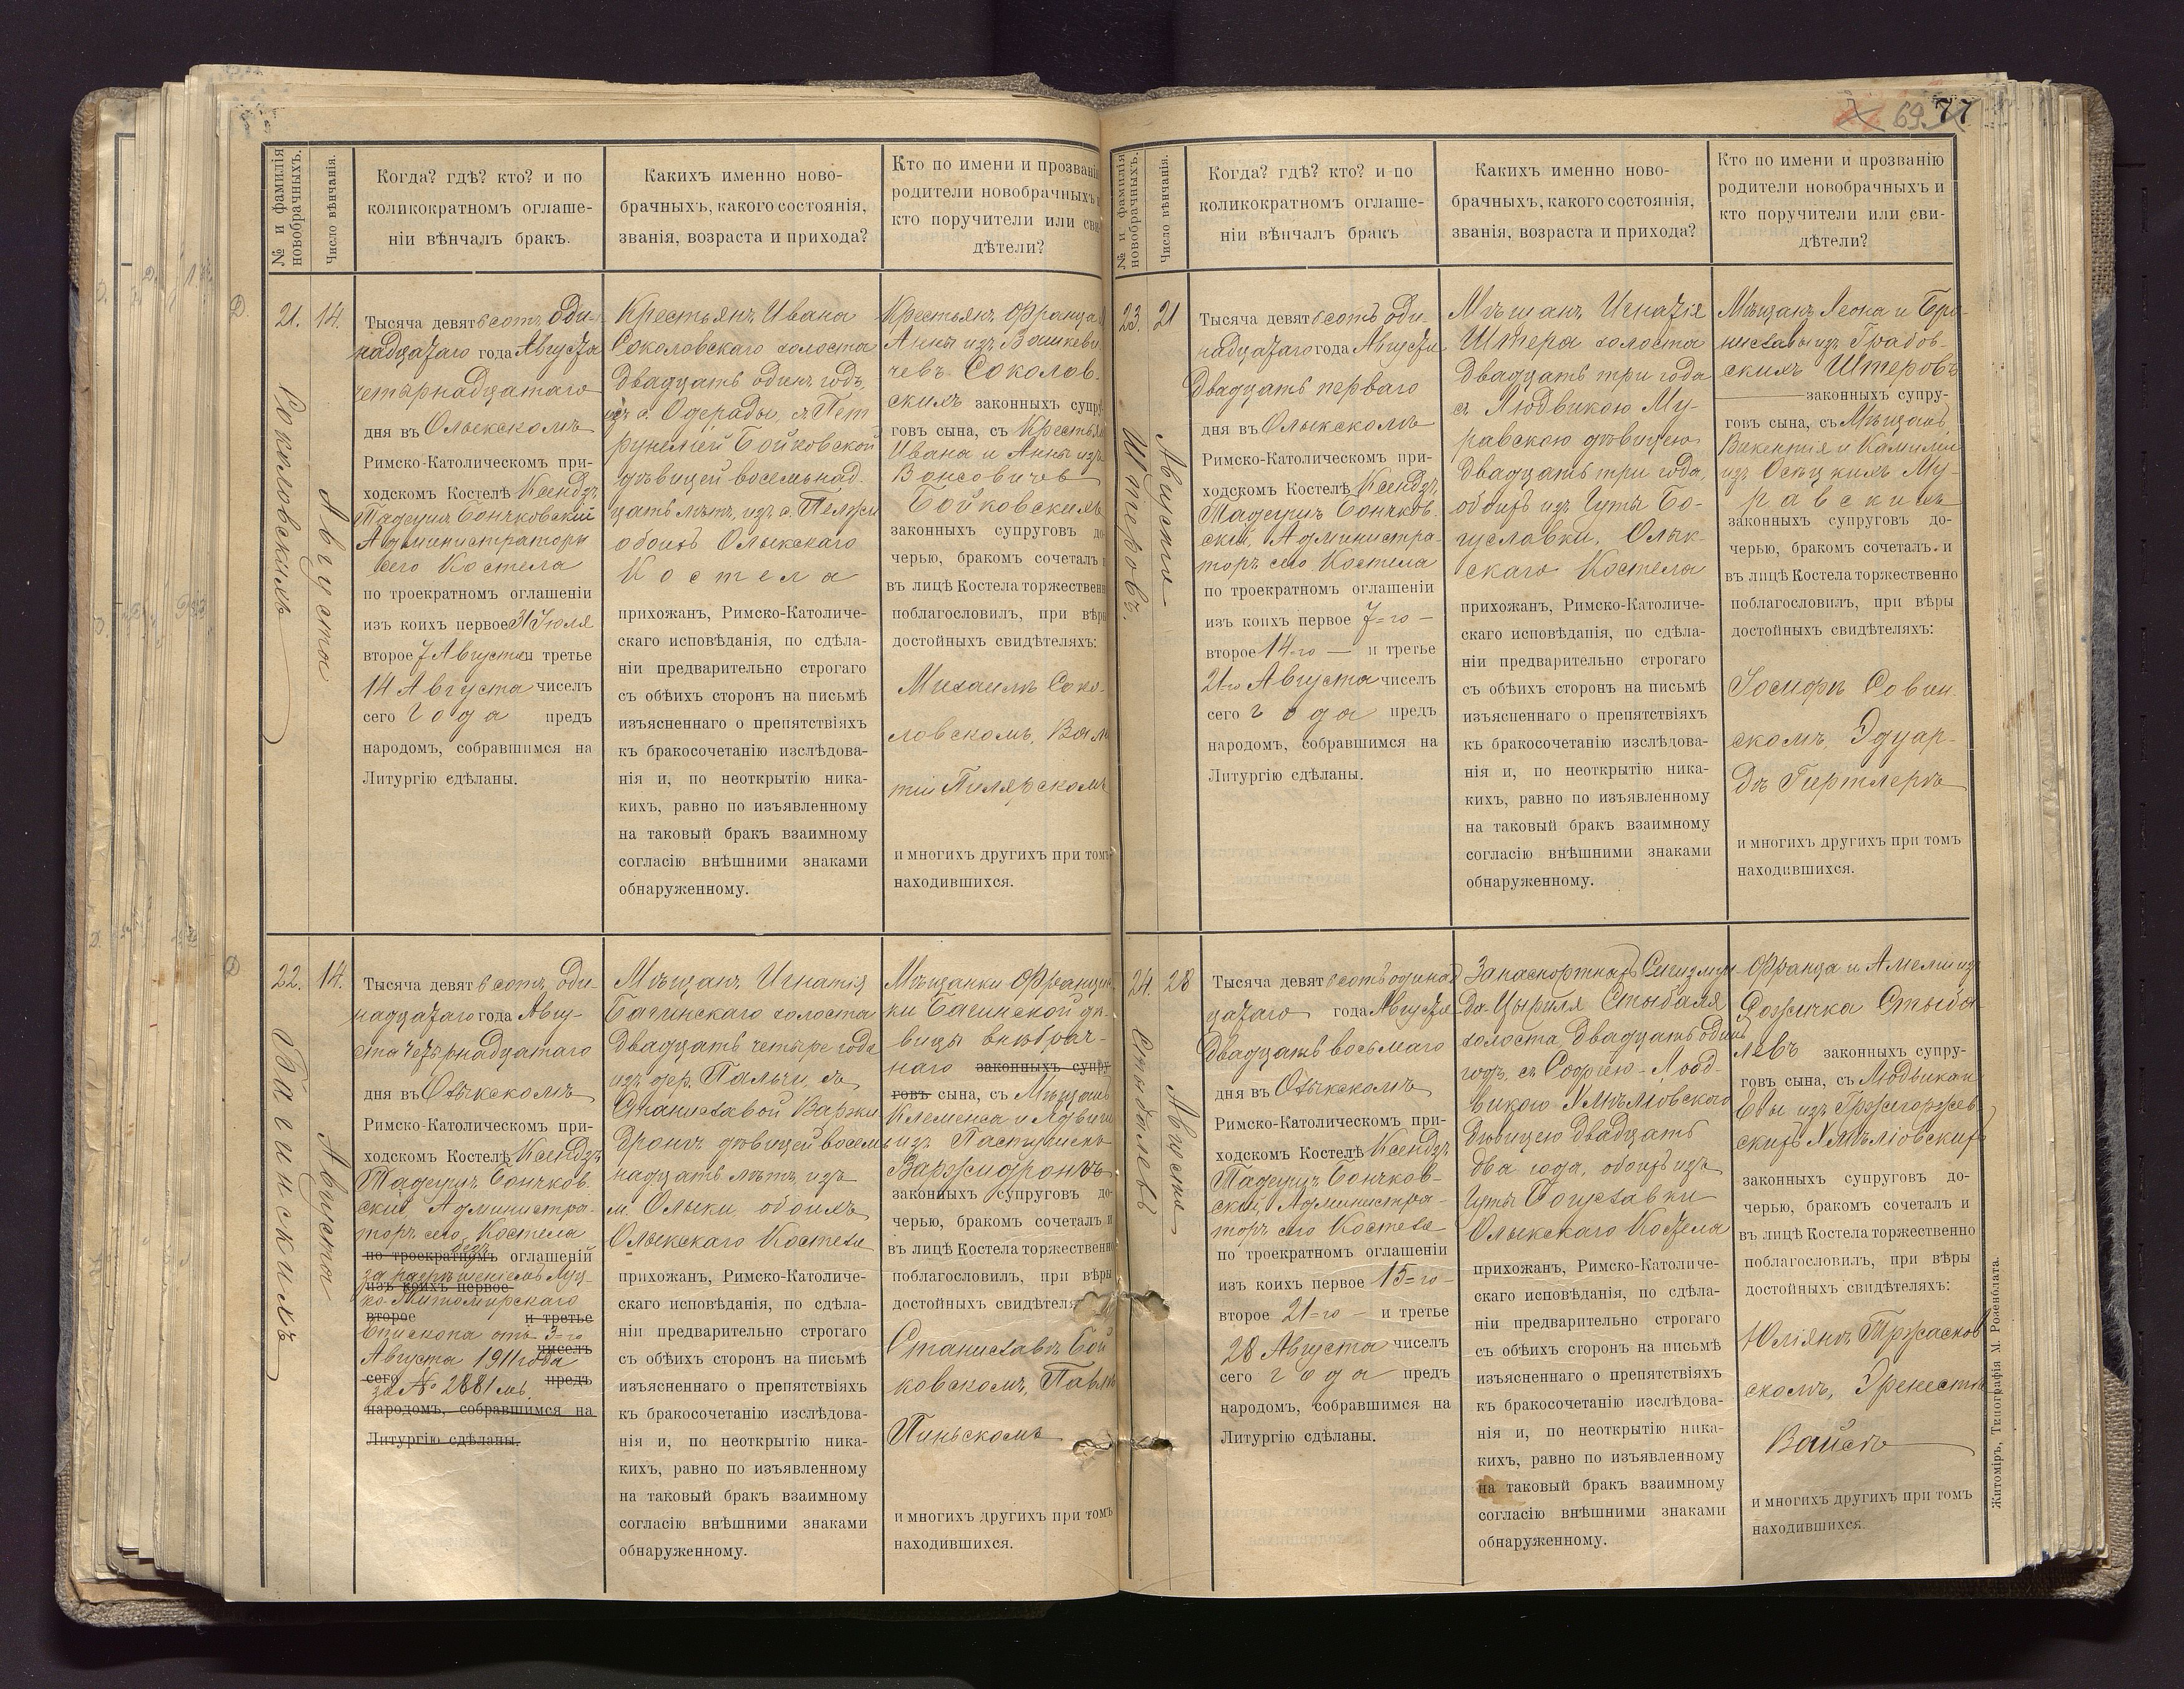 69 77
№ и фамилія новобрачныхъ.
Число вѣнчанія.
Когда? гдѣ? кто? и по
коликократномъ оглаше-
ніи вѣнчалъ бракъ.
Какихъ именно ново-
брачныхъ, какого состоянія,
званія, возраста и прихода?
Кто по имени и прозванію
родители новобрачныхъ и
кто поручители или сви-
дѣтели?
21.
Соколовскимъ
14.
Августа
Тысяча девятьсотъ оди-
надцатаго года Августа
четырнадцатаго
дня въ Олыкскомъ
Римско-Католическомъ при-
ходскомъ Костелѣ Ксендзъ
Тадеушъ Бончковскій
Администраторъ
сего Костела
по троекратномъ оглашеніи
изъ коихъ первое 31 Іюля
второе 7 Августа и третье
14 Августа чиселъ
сего года предъ
народомъ, собравшимся на
Литургію сдѣланы.
Крестьянъ Ивана
Соколовскаго холоста
двадцать одинъ годъ
изъ с. Одерады, съ Пет
рунелей Бойковской
дѣвицей восемьнад
цать лѣтъ, изъ с. Пелжи
обоихъ Олыкскаго
Костела
прихожан, Римско-Католиче-
скаго исповѣданія, по сдѣла-
ніи предварительно строгаго
съ обѣихъ сторонъ на письмѣ
изъясненнаго о препятствіяхъ
къ бракосочетанію изслѣдова-
нія и, по неоткрытію ника-
кихъ, равно по изъявленному
на таковый бракъ взаимному
согласію внѣшними знаками
обнаруженному.
Крестьянъ Франца и
Анны изъ Вашкеви
чевъ Соколов-
скихъ законныхъ супру-
говъ сына, съ Крестьянъ
Ивана и Анны изъ
Вонсовичевъ
Бойковскихъ
законныхъ супруговъ до-
черью, бракомъ сочеталъ и
въ лицѣ Костела торжественно
поблагословилъ, при вѣры
достойныхъ свидѣтеляхъ:
Михаилѣ Соко-
ловскомъ,
Пилярскомъ
и многихъ другихъ при томъ
находившихся.
22.
Багинскимъ
14.
Августа
Тысяча девятьсотъ оди-
надцатаго года Авгу-
ста четырнадцатаго
дня въ Олыкскомъ
Римско-Католическомъ при-
ходскомъ Костелѣ Ксендзъ
Тадеушъ Бончков-
скій, Администра-
торъ сего Костела
по троекратномъ безъ оглашеній
за разрѣшеніемъ Луц-
изъ коихъ первое
ко-Житомирскаго
второе и третье
Епископа отъ 3=го
чиселъ
Августа 1911 года
сего предъ
за № 2881 мъ.
народомъ, собравшимся на
Литургію сдѣланы.
Мѣщанъ Игнатія
Багинскаго холоста
двадцать четыре года
изъ дер. Пальчи, съ
Станиславой Варжи
дронъ дѣвицей восемь
надцать лѣтъ, изъ
м. Олыки обоихъ
Олыкскаго Костела
прихожан, Римско-Католиче-
скаго исповѣданія, по сдѣла-
ніи предварительно строгаго
съ обѣихъ сторонъ на письмѣ
изъясненнаго о препятствіяхъ
къ бракосочетанію изслѣдова-
нія и, по неоткрытію ника-
кихъ, равно по изъявленному
на таковый бракъ взаимному
согласію внѣшними знаками
обнаруженному.
Мѣщанки Францис
ки Багинской дѣ-
вицы внѣбрач-
наго законныхъ супру
говъ сына, съ Мѣщанъ
Клеменса и Ядвиги
изъ
Варжидроновъ
законныхъ супруговъ до-
черью, бракомъ сочеталъ и
въ лицѣ Костела торжественно
поблагословилъ, при вѣры
достойныхъ свидѣтеля
Станиславѣ Бой
ковскомъ, Павлѣ
Пиньскомъ
и многихъ другихъ при томъ
находившихся.
№ и фамилія новобрачныхъ.
Число вѣнчанія.
Когда? гдѣ? кто? и по
коликократномъ оглаше-
ніи вѣнчалъ бракъ
Какихъ именно ново-
брачныхъ, какого состоянія,
званія, возраста и прихода?
Кто по имени и прозванію
родители новобрачныхъ и
кто поручители или сви-
дѣтели?
23.
Штеровъ.
21
Августа
Тысяча девятьсотъ оди
надцатаго года Августа
двадцать перваго
дня въ Олыкскомъ
Римско-Католическомъ при-
ходскомъ Костелѣ Ксендзъ
Тадеушъ Бончков-
скій, Администра-
торъ сего Костела
по троекратномъ оглашеніи
изъ коихъ первое 7=го
второе 14-го и третье
21го Августа чиселъ
сего года предъ
народомъ, собравшимся на
Литургію сдѣланы.
Мѣщанъ Игнатія
Штера холоста
двадцать три года
съ Людвикою Му-
равскою дѣвицею
двадцать три года,
обоихъ изъ Гуты Бо-
гуславки, Олык-
скаго Костела
прихожан, Римско-Католиче-
скаго исповѣданія, по сдѣла-
ніи предварительно строгаго
съ обѣихъ сторонъ на письмѣ
изъясненнаго о препятствіяхъ
къ бракосочетанію изслѣдова-
нія и, по неоткрытію ника-
кихъ, равно по изъявленному
на таковый бракъ взаимному
согласію внѣшними знаками
обнаруженному.
Мѣщанъ Леона и Бро-
ниславы изъ Грабов-
скихъ Штеровъ
законныхъ супру-
говъ сына, съ Мѣщанъ
Викентія и Камиліи
изъ Осецкихъ Му-
равскихъ
законныхъ супруговъ до-
черью, бракомъ сочеталъ и
въ лицѣ Костела торжественно
поблагословилъ, при вѣры
достойныхъ свидѣтеляхъ:
Іосифѣ Совин-
скомъ, Эдуар-
дѣ Гиртлерѣ
и многихъ другихъ при томъ
находившихся.
24.
Стыбалевъ
28
Августа
Тысяча девятьсотъ одинад
цатаго года Августа
двадцать восьмаго
дня въ Олыкскомъ
Римско-Католическомъ при-
ходскомъ Костелѣ Ксендзъ
Тадеушъ Бончков-
скій, Администра-
торъ сего Костела
по троекратномъ оглашеніи
изъ коихъ первое 15=го
второе 21=го и третье
28 Августа чиселъ
сего года предъ
народомъ, собравшимся на
Литургію сдѣланы.
Запаспортныхъ Сигизмун-
да-Цыриля Стыбаля
холоста, двадцать одинъ
годъ, съ Софіею-Люд-
викою Хмѣлювскою
дѣвицею двадцать
два года, обоихъ изъ
Гуты Богуславки
Олыкскаго Костела
прихожан, Римско-Католиче-
скаго исповѣданія, по сдѣла-
ніи предварительно строгаго
съ обѣихъ сторонъ на письмѣ
изъясненнаго о препятствіяхъ
къ бракосочетанію изслѣдова-
нія и, по неоткрытію ника-
кихъ, равно по изъявленному
на таковый бракъ взаимному
согласію внѣшними знаками
обнаруженному.
Франца и Амеліи изъ
Стыба-
левъ законныхъ супру-
говъ сына, съ Людвика и
Евы изъ Гржегоржев-
скихъ Хмѣлювскихъ
законныхъ супруговъ до-
черью, бракомъ сочеталъ и
въ лицѣ Костела торжественно
поблагословилъ, при вѣры
достойныхъ свидѣтеляхъ:
Юліянѣ Тржасков
скомъ, Эрнестѣ
Вайсъ
и многихъ другихъ при томъ
находившихся.
Житоміръ, Типографія М. Розенблата.